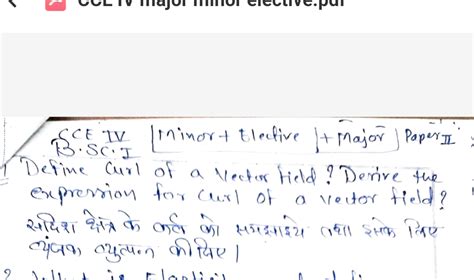 CCE IV major minor elective.pdf
CCE IV [Minor + Elective] + Major] Paper II
B.SC. I
1 Define Curl of a vector field? Derive the
expression for curl of a vector field?
सदिश क्षेत्र के कर्ल को समझाइये तथा इसके लिए
व्यंजक व्युत्पन्न कीजिए।
2 What is